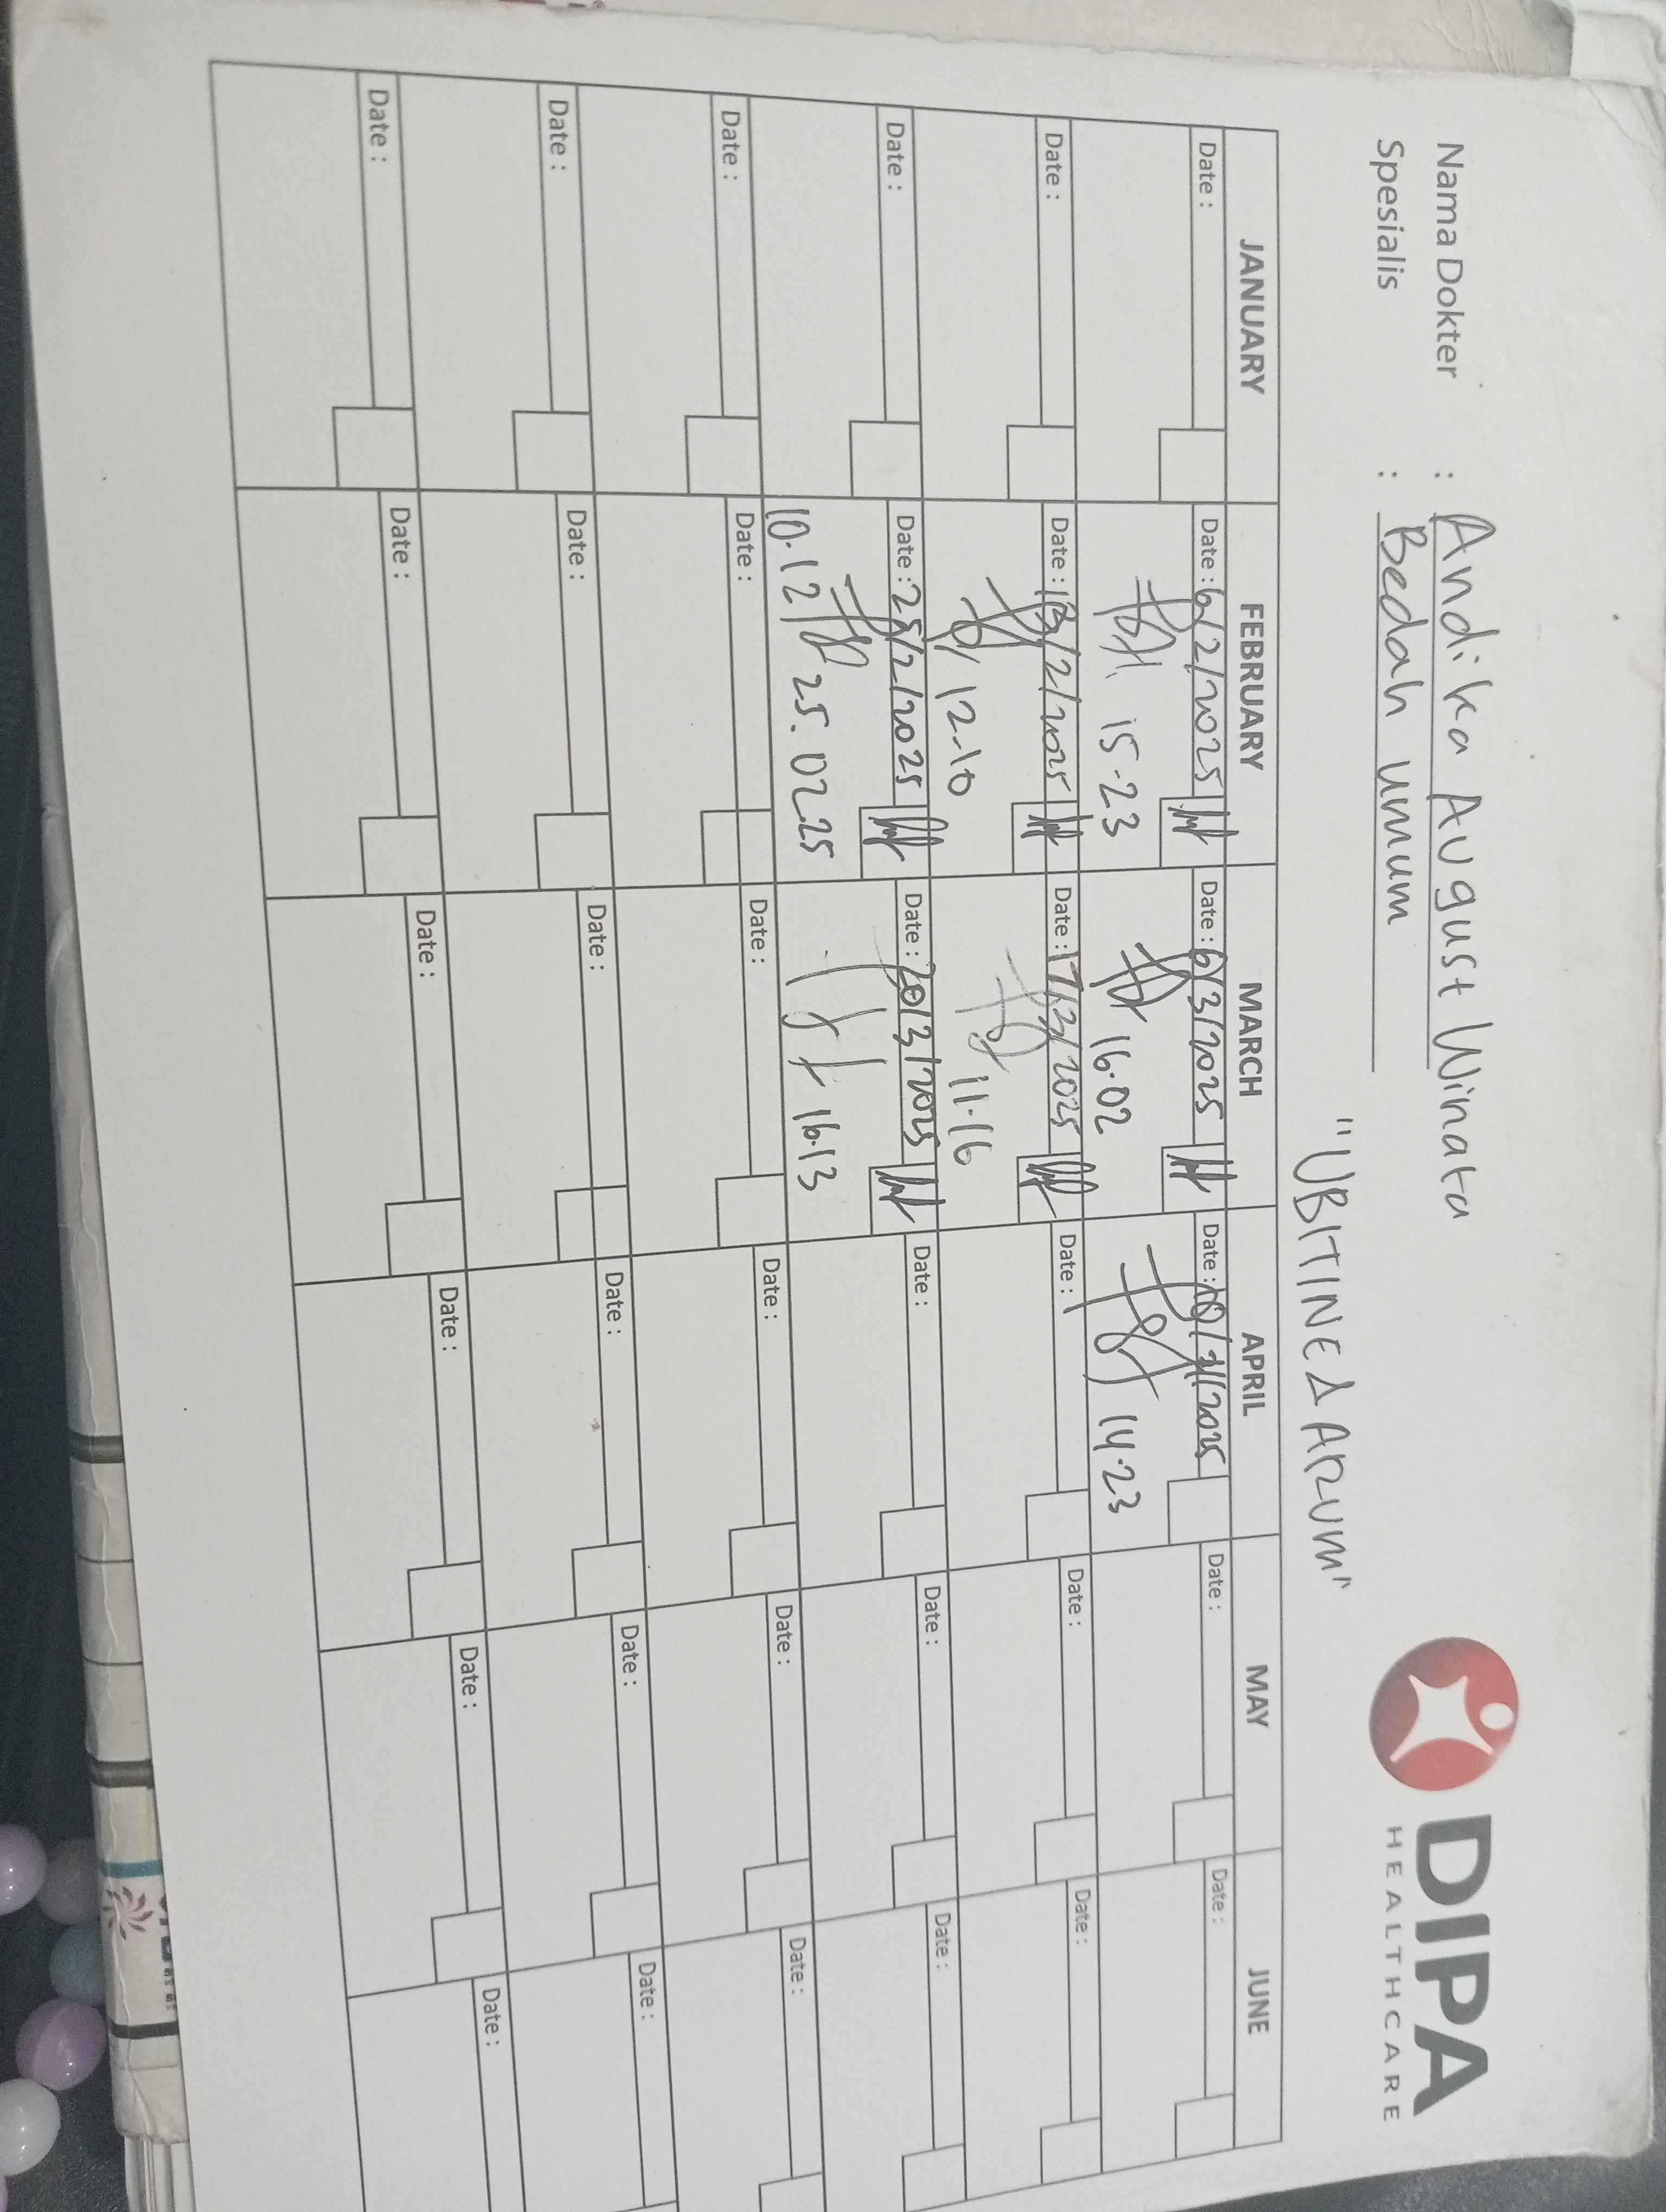 Nama Dokter : Andika August Winata
Spesialis : Bedah umum
DIPA
HEALTHCARE
"UBITINE & ARUM"
JANUARY FEBRUARY MARCH APRIL MAY JUNE
Date : Date : 6/2/2025 Date : 6/3/2025 Date : /2025 Date : Date :
15.23 16.02 14.23
Date : Date : 13/2/2025 Date : 17/3/2025 Date : Date : Date :
12.10 11.16
Date : Date : 25/2/2025 Date : 20/3/2025 Date : Date : Date :
10.12 25.02.25 16.13
Date : Date : Date : Date : Date : Date :
Date : Date : Date : Date : Date : Date :
Date : Date : Date : Date : Date : Date :